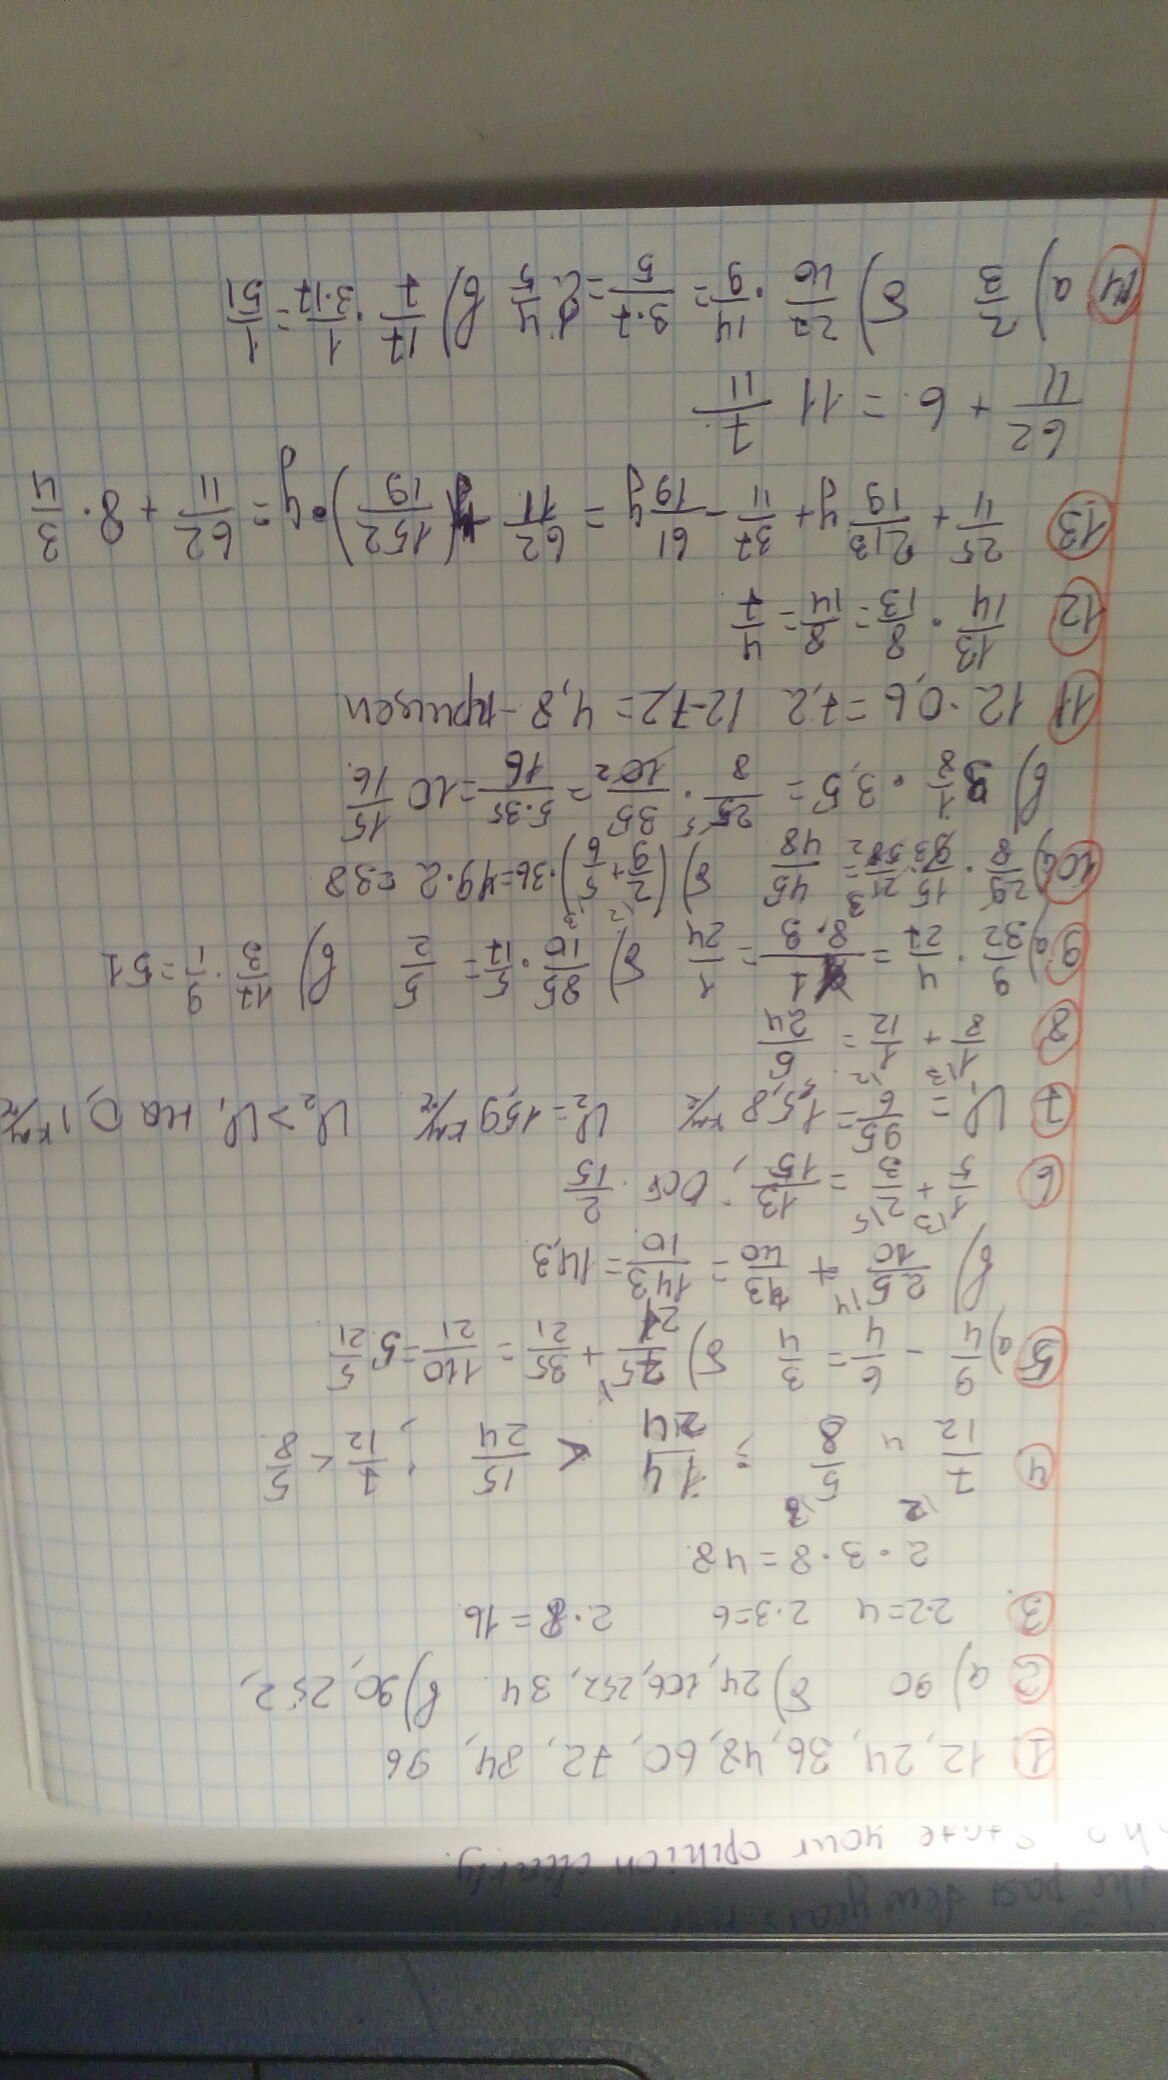 the past few years
who state your opinion clearly.
① 12, 24, 36, 48, 60, 72, 84, 96
② а) 90 б) 24, 106, 252, 34 в) 90, 252,
③ 2·2=4 2·3=6 2·8=16
2·3·8=48
④ 7/12 и 5/8 ; 14/24 < 15/24 ; 7/12 < 5/8
⑤ а) 9/4 - 6/4 = 3/4 б) 75/21 + 35/21 = 110/21 = 5 5/21
в) 25/10 + 43/40 = 143/10 = 14,3
⑥ 1/5 + 2/3 = 13/15, Ост. 2/15
⑦ V₁ = 95/6 = 15,8 км/ч V₂ = 15,9 км/ч V₂ > V₁ на 0,1 км/ч
⑧ 1/8 + 1/12 = 5/24
⑨ а) 9/32 · 4/27 = 1/8·3 = 1/24 б) 85/10 · 5/17 = 5/2 в) 17/3 · 9/1 = 51
⑩ а) 25/8 · 15/ = 45/48 б) (2/9 + 5/6)·36 = 49·2 = 38
в) 3 1/8 · 3,5 = 25/8 · 35/10 = 5·35/16 = 10 15/16
⑪ 12·0,6 = 7,2 12-7,2 = 4,8 - принцем
⑫ 13/14 · 8/13 = 8/14 = 4/7
⑬ 25/11 + 213/19 y + 37/11 - 61/19 y = 62/11 + (152/19)·y = 62/11 + 8· 3/4
62/11 + 6 = 11 7/11
⑭ а) 2/3 б) 27/10 · 14/9 = 3·7/5 = 4/5 в) 17/7 · 1/3·17 = 1/51